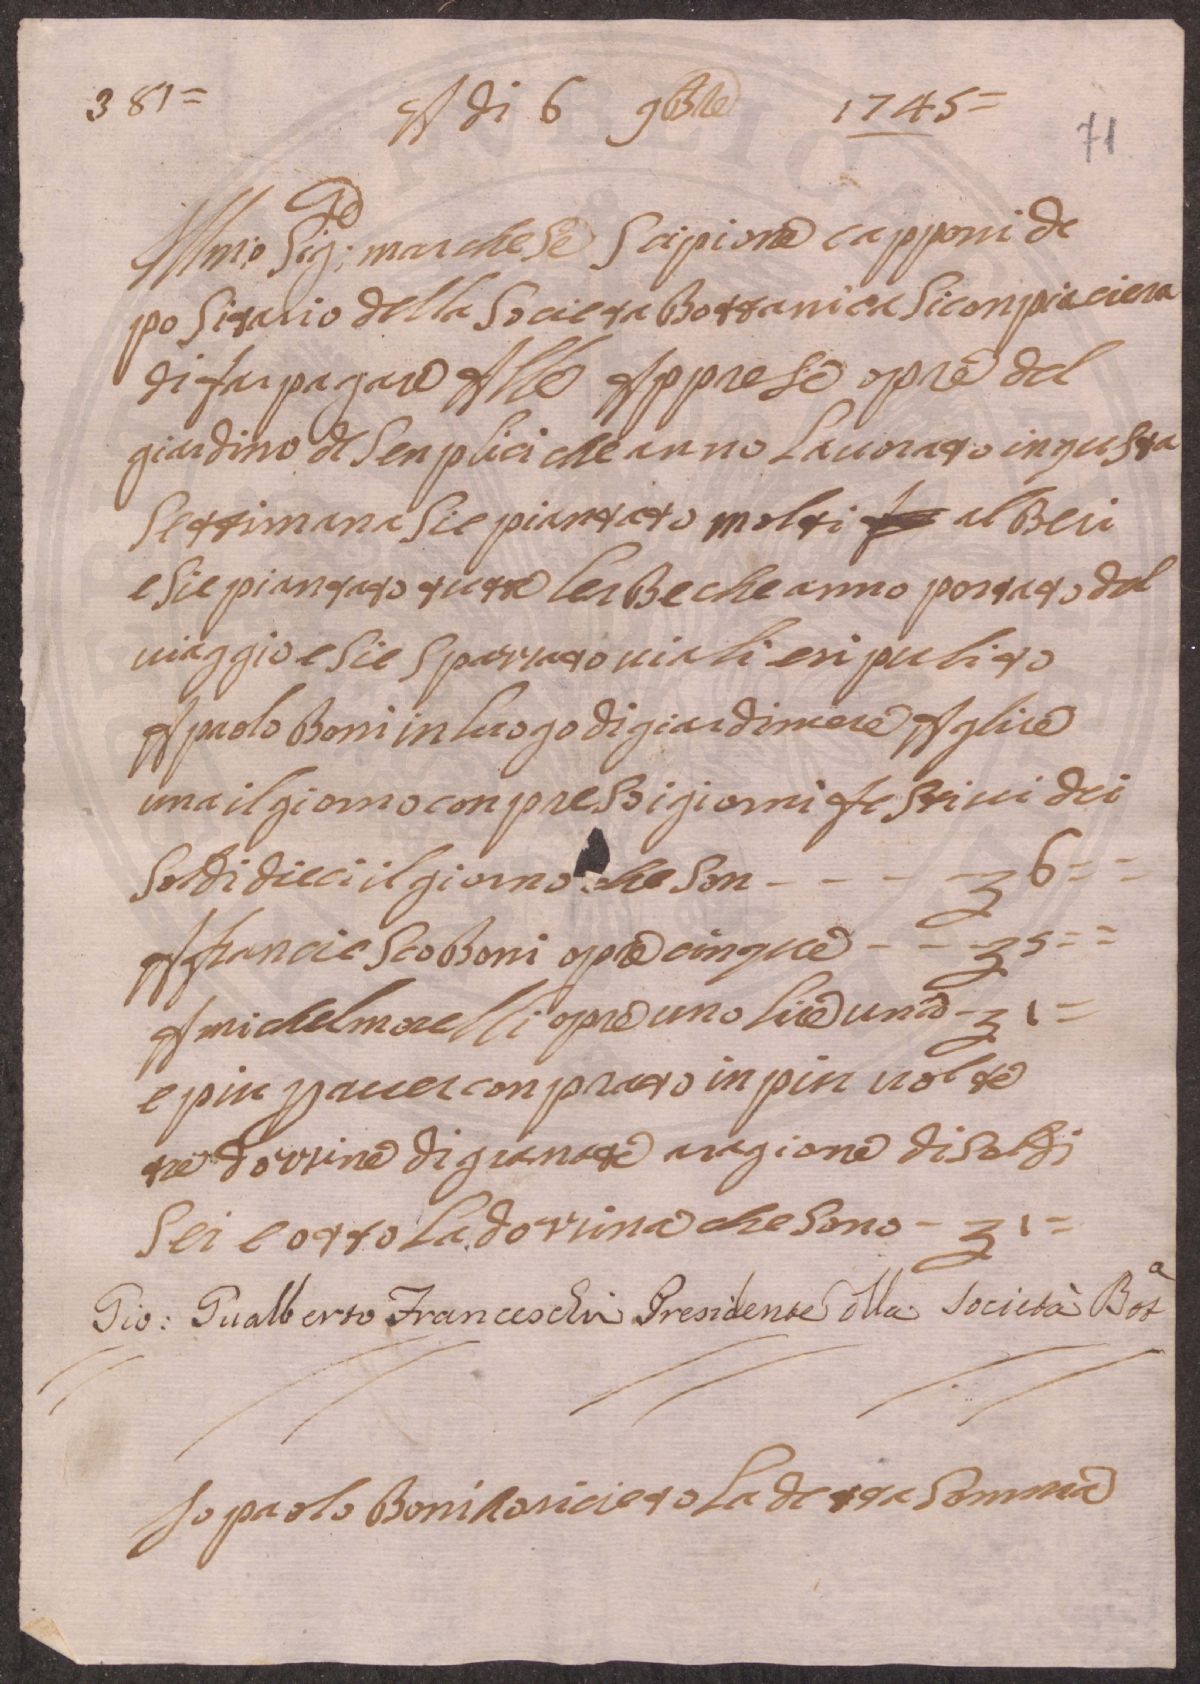 381= A di 6 9bre 1745=
71
Illmo Sig:re marchese Scipione capponi de
positario della Societa Bottanica Siconpiaciera
di far pagare Alle Apprese opre del
giardino de Senplici che anno Lavorato inqusta
Settimana Sie piantato molti alberi
e Sie piantato tutte lerbe che anno portato dal
viaggio e Sie Spazzato viali eripulito
A paolo Boni in luogo di giardiniere A glire
una il giorno conpresoi giorni festivi dei
Soldi dieci il giorno che Son - - - - 6 = -
A francicsco Boni opre cinque - - - 5 = =
A michel morelli opre uno lire una - 1 =
e piu p aver conprato in piu volte
tre dozzine di granate aragione di Soldi
Sei e otto la dozzina che Sono - 1 =
Gio: Gualberto Franceschi Presidente della Società Bota
Io paolo Boni ho riceuto La detta Somma